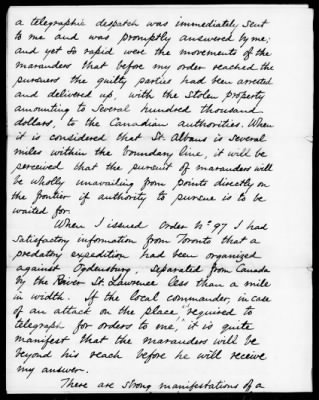 a telegraphic despatch was immediately sent
to me and was promptly answered by me;
and yet so rapid were the movements of the
marauders that before my order reached the
pursuers the guilty parties had been arrested
and delivered up, with the stolen property
amounting to several hundred thousand
dollars, to the Canadian authorities. When
it is considered that St. Albans is several
miles within the boundary line, it will be
perceived that the pursuit of marauders will
be wholly unavailing from points directly on
the frontier if authority to pursue is to be
waited for.
When I issued Order No. 97 I had
satisfactory information from Toronto that a
predatory expedition had been organized
against Ogdensburg, separated from Canada
by the River St. Lawrence less than a mile
in width. If the local commander, in case
of an attack on the place, "required to
telegraph for orders to me," it is quite
manifest that the marauders will be
beyond his reach before he will receive
my answer.
There are strong manifestations of a